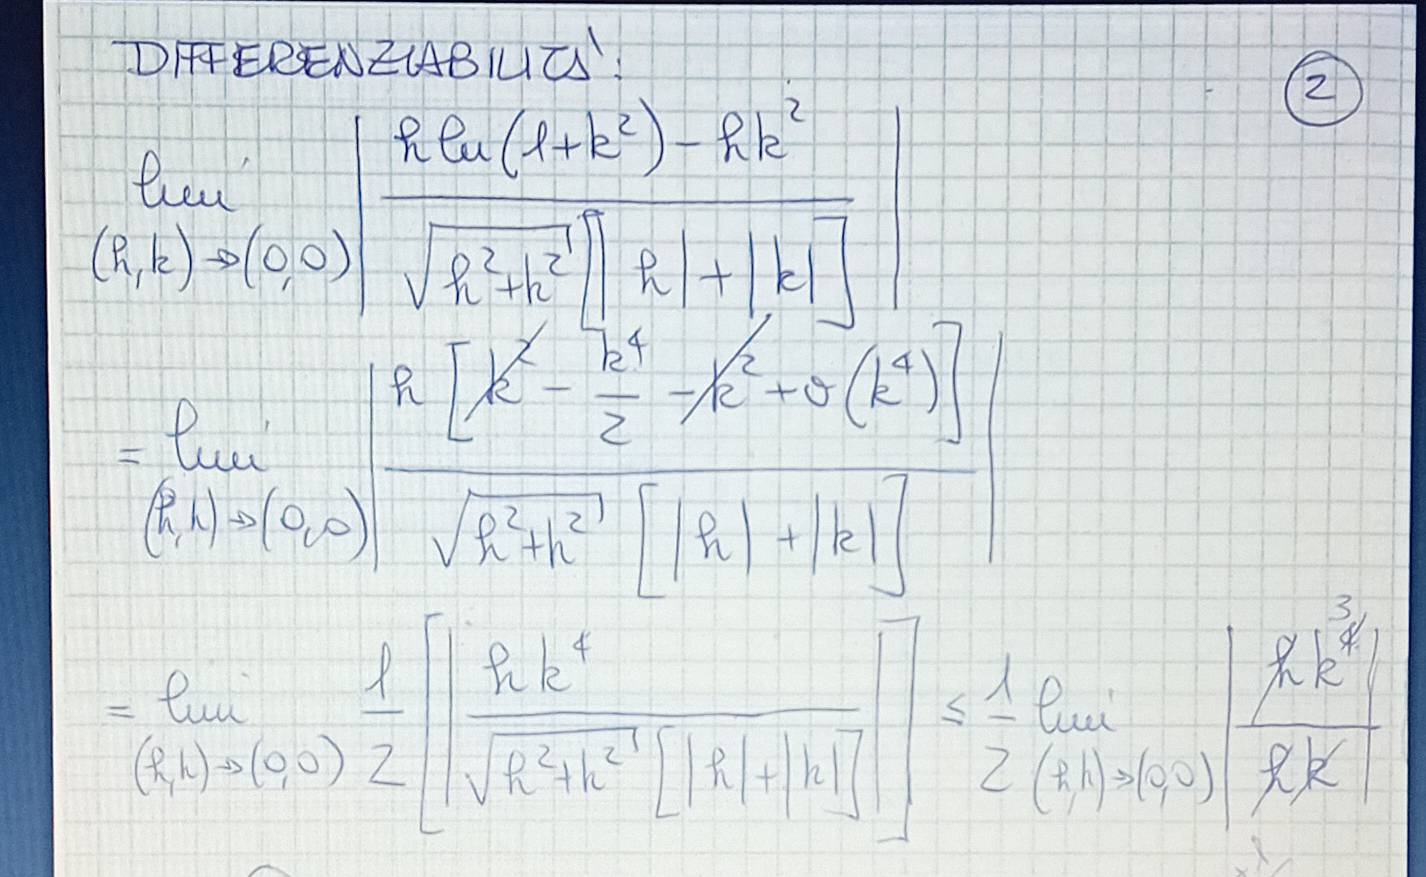 DIFFERENZIABILITÀ:
2
lim (h,k)→(0,0) | (h ln(1+k²) - hk²) / (√(h²+k²) [|h|+|k|]) |
= lim (h,k)→(0,0) | h [k² - k⁴/2 - k² + o(k⁴)] / (√(h²+k²) [|h|+|k|]) |
= lim (h,k)→(0,0) 1/2 [| hk⁴ / (√(h²+k²) [|h|+|k|]) |] ≤ 1/2 lim (h,k)→(0,0) | hk⁴ 3 / hk |